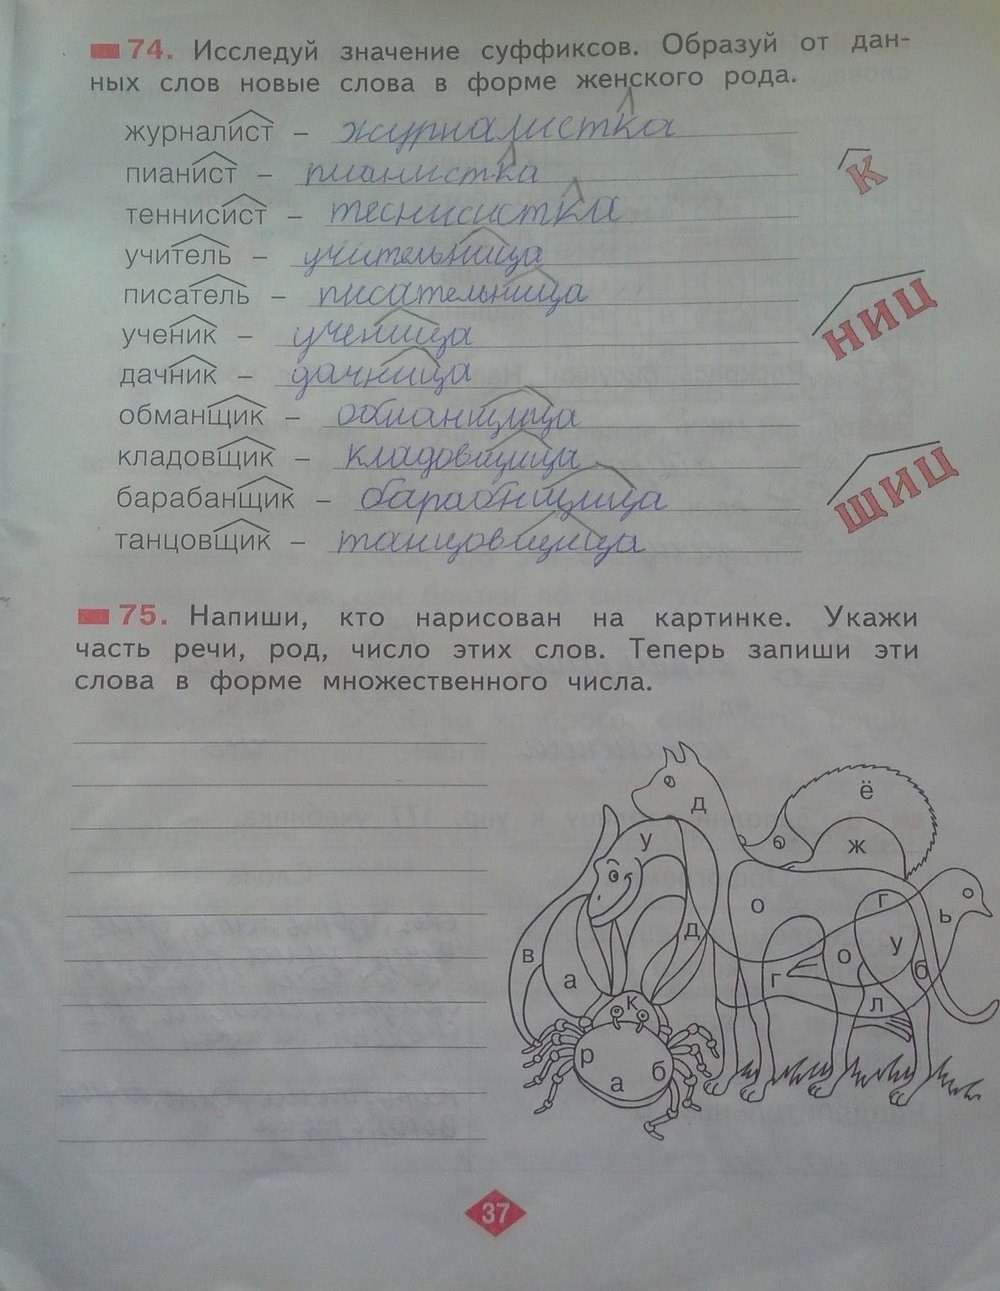 74. Исследуй значение суффиксов. Образуй от дан-
ных слов новые слова в форме женского рода.
журналист – журналистка
пианист – пианистка
К
теннисист – теснисистка
учитель – учительница
писатель – писательница
НИЦ
ученик – ученица
дачник – дачница
обманщик – обманщица
кладовщик – кладовщица
ЩИЦ
барабанщик – барабнщица
танцовщик – танцовщица
75. Напиши, кто нарисован на картинке. Укажи
часть речи, род, число этих слов. Теперь запиши эти
слова в форме множественного числа.
ё
д
у ж
о г ь
д о у
в г б
а л
к
р
а б
37